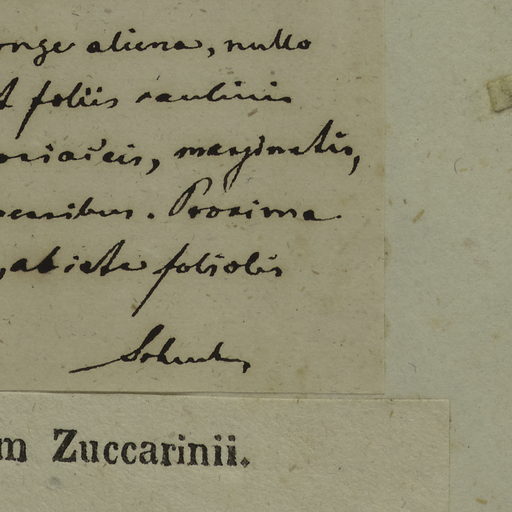 onge aliena, nullo
t foliis caulinis
oriaceis, marginatis,
pearibus. Proxima
, at ista foliolis
Schultz,
m Zuccarinii.